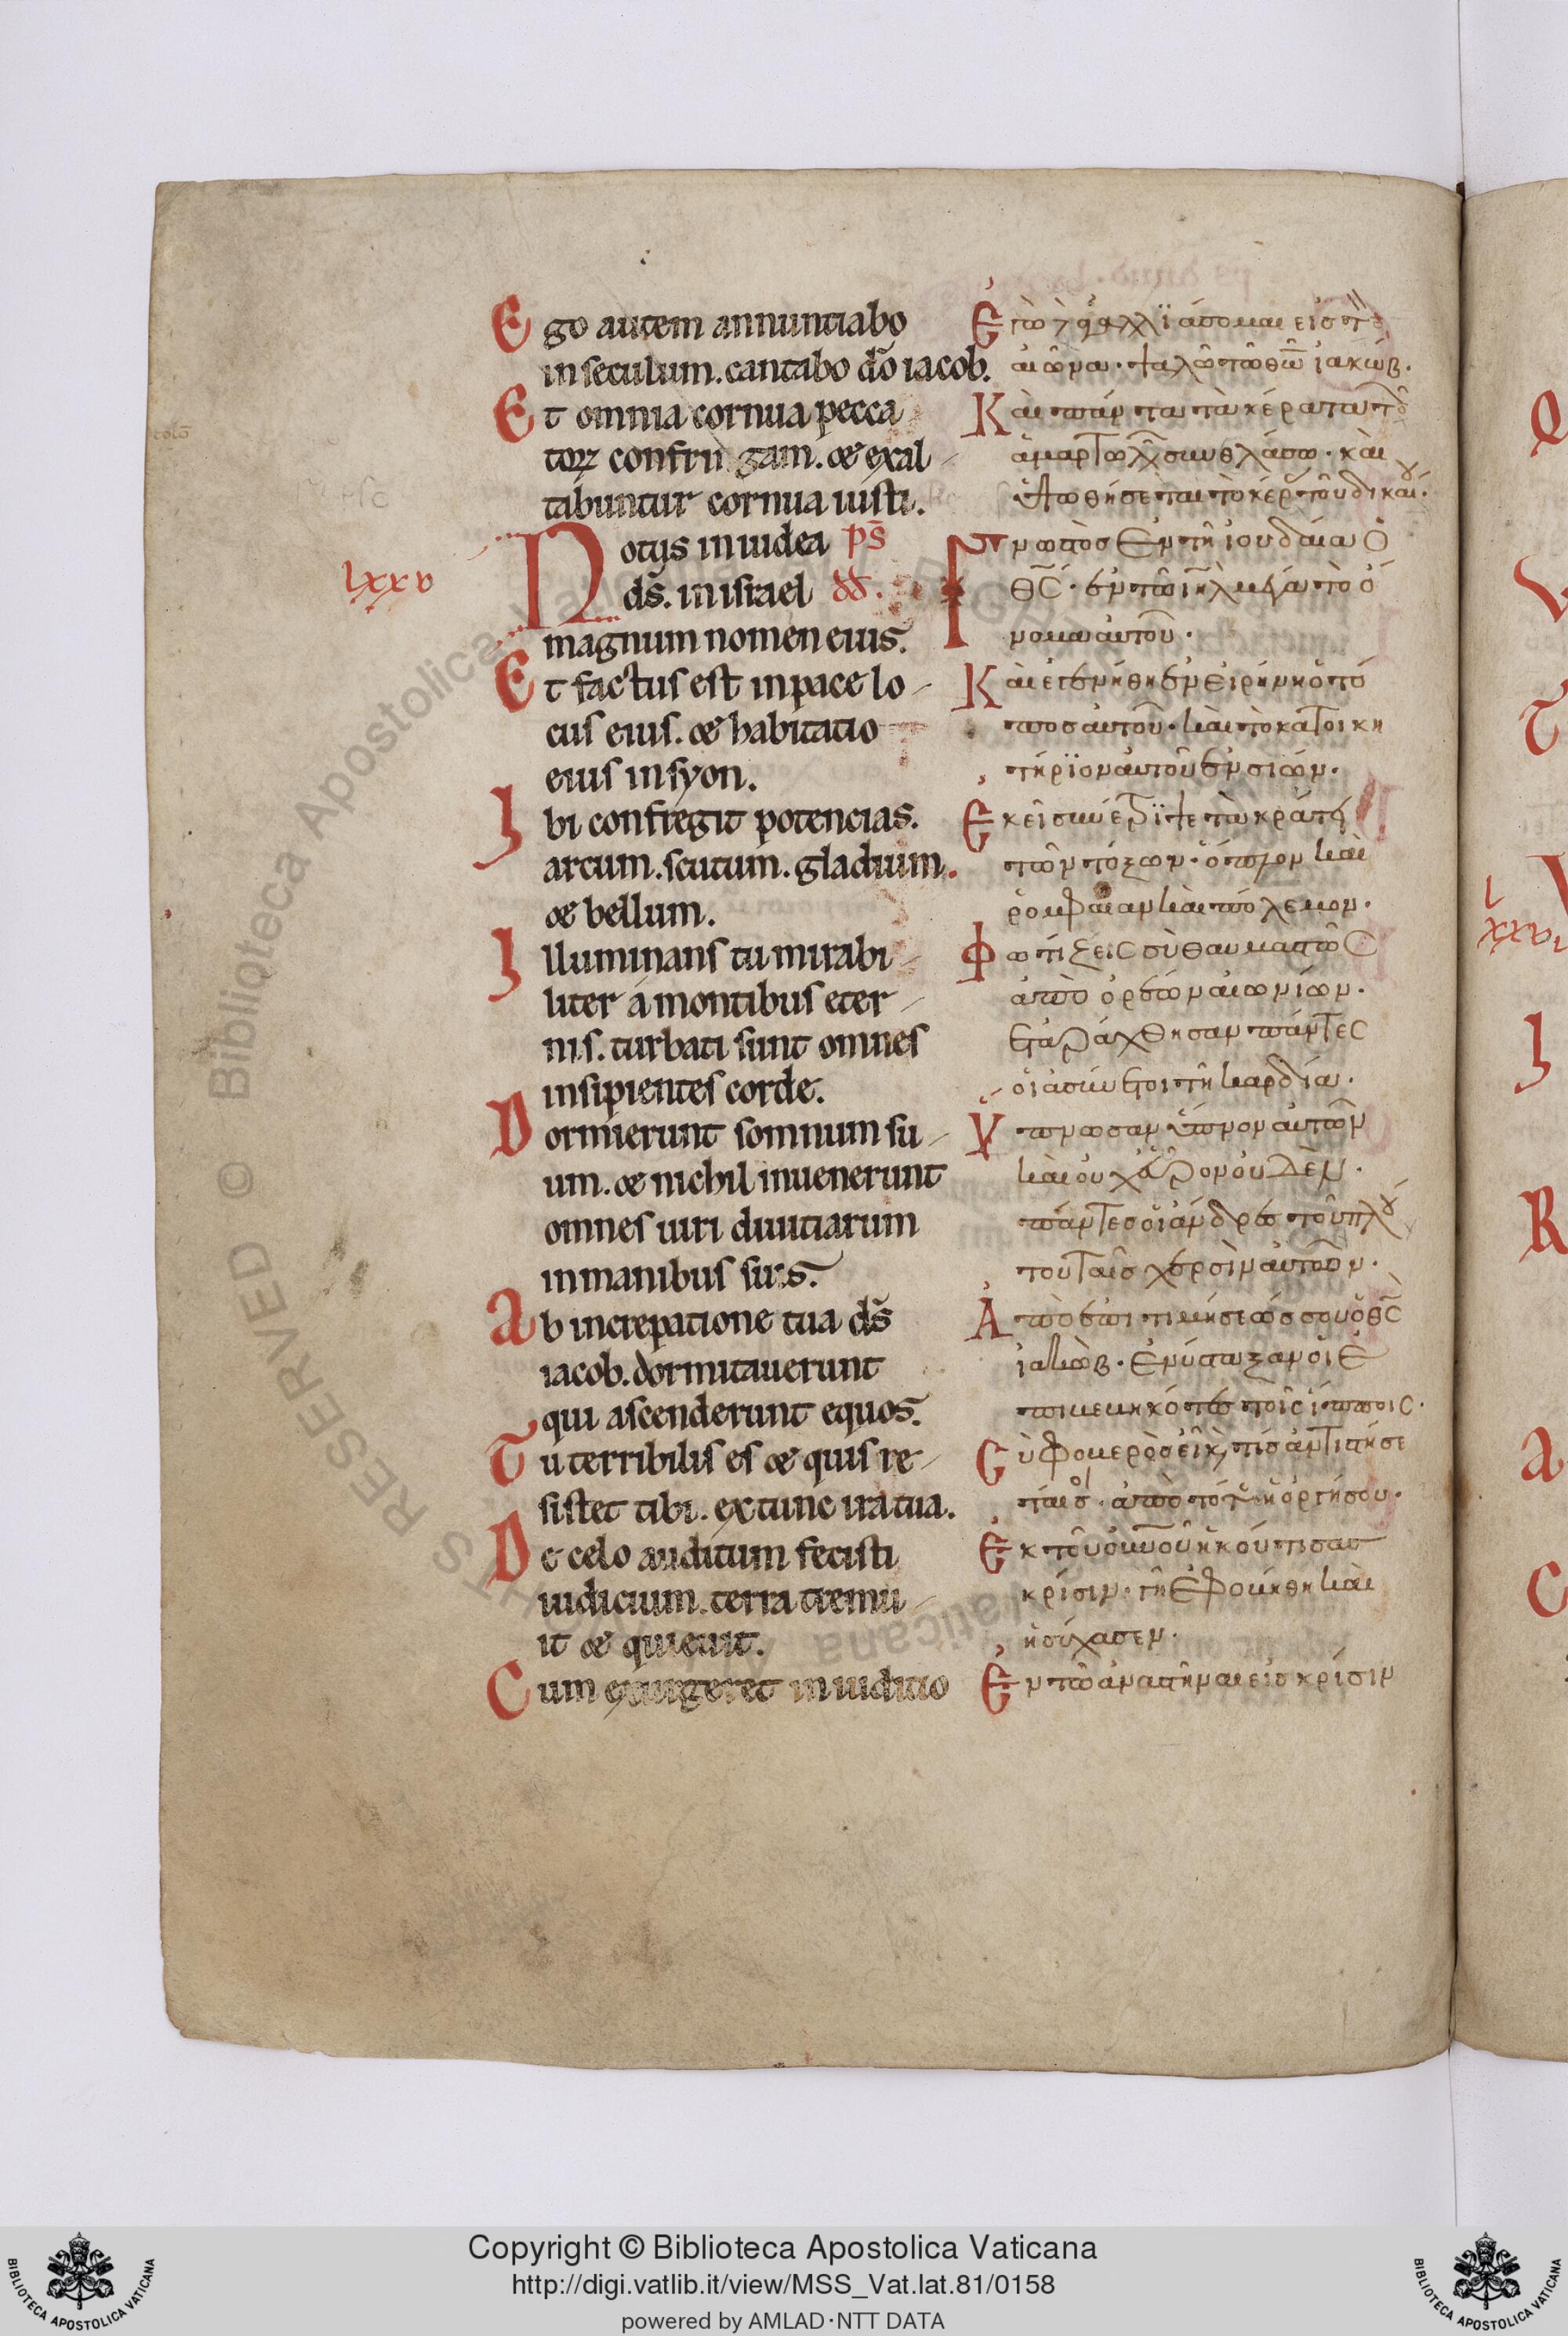 Ego autem annuntiabo
in seculum. cantabo dõ iacob.
Et omnia cornua pecca
torꝝ confrin gam. & exal-
tabuntur cornua iusti.
Notus in iudea p̃s
ds̃. in israel dd̃.
lxxv
magnum nomen eius.
Et factus est in pace lo-
cus eius. & habitatio
eius in syon.
Ibi confregit potencias.
arcum. scutum. gladium.
& bellum.
Illuminans tu mirabi-
liter a montibus eter-
nis. turbati sunt omnes
insipientes corde.
Dormierunt somnum su-
um. & nichil inuenerunt
omnes uiri diuitiarum
in manibus suis.
Ab increpatione tua ds̃
iacob. dormitauerunt
qui ascenderunt equos.
Tu terribilis es & quis re-
sistet tibi. ex tunc ira tua.
De celo auditum fecisti
iudicium. terra tremu-
it & quieuit.
Cum exurgeret in iuditio
ἀγαλλϊάσομαι εἰς τὸ
αἰῶνα. ψαλῶ τῶ θῶ ἰακώβ.
Κὰι πάντα τὰ κέρατα τῶ
ἁμαρτωλῶ συνθλάσω. κὰι
ὑψωθήσεται τὸ κέρ τοῦ δικαί.
Γνωστὸσ ἐν τῆ ἰουδάια ὁ
θς̃. ἐν τῶ ιη̃λ μέγα τὸ ὄ
νομα αυτοῦ.
Κὰι ἐγενήθη ἐν εἰρήνη ὁ τό
ποσ αυτοῦ. κὰι τὸ κατοικη
τήριον αὐτοῦ ἐν σιών.
Ἐκεῖ συνέτριψε τὰ κράτη
τῶν τόξων. ὅπλον κὰι
ῥομφαιαν κὰι πόλεμον.
Φωτίζεις σὺ θαυμαστῶς
ἀπὸ ὀρέων αἰωνίων.
ἐταράχθησαν πάντες
ὁι ἀσύνετοι τῆ καρδία.
Ὕπνωσαν ὕπνον αὐτῶν
κὰι ὀυχ ἑῦρον ὀυδὲν.
πάντεσ ὁι ἄνδρες τοῦ πλού
του ταῖσ χερσὶν αὐτῶν.
Ἀπὸ ἐπιτιμήσεώς σου ὁ θς̃
ἰακὼβ. Ἐνύσταξαν ὁι ἐ
πιβεβηκότες τοῖς ἵπποις.
Σὺ φοβερὸσ εἶ κ τίσ ἀντιστήσε
ταί σοι. ἀπὸ τότε ἡ ὀργή σου.
Ἐκ τοῦ ὀυνοῦ ἠκούτισασ
κρίσιν. γῆ ἐφοβήθη κὰι
ἡσύχασεν.
Ἐν τῶ ἀναστῆναι εἰσ κρίσιν
l
xxvi
© Biblioteca Apostolica Vaticana
Copyright © Biblioteca Apostolica Vaticana
http://digi.vatlib.it/view/MSS_Vat.lat.81/0158
powered by AMLAD·NTT DATA
BIBLIOTECA APOSTOLICA VATICANA
BIBLIOTECA APOSTOLICA VATICANA